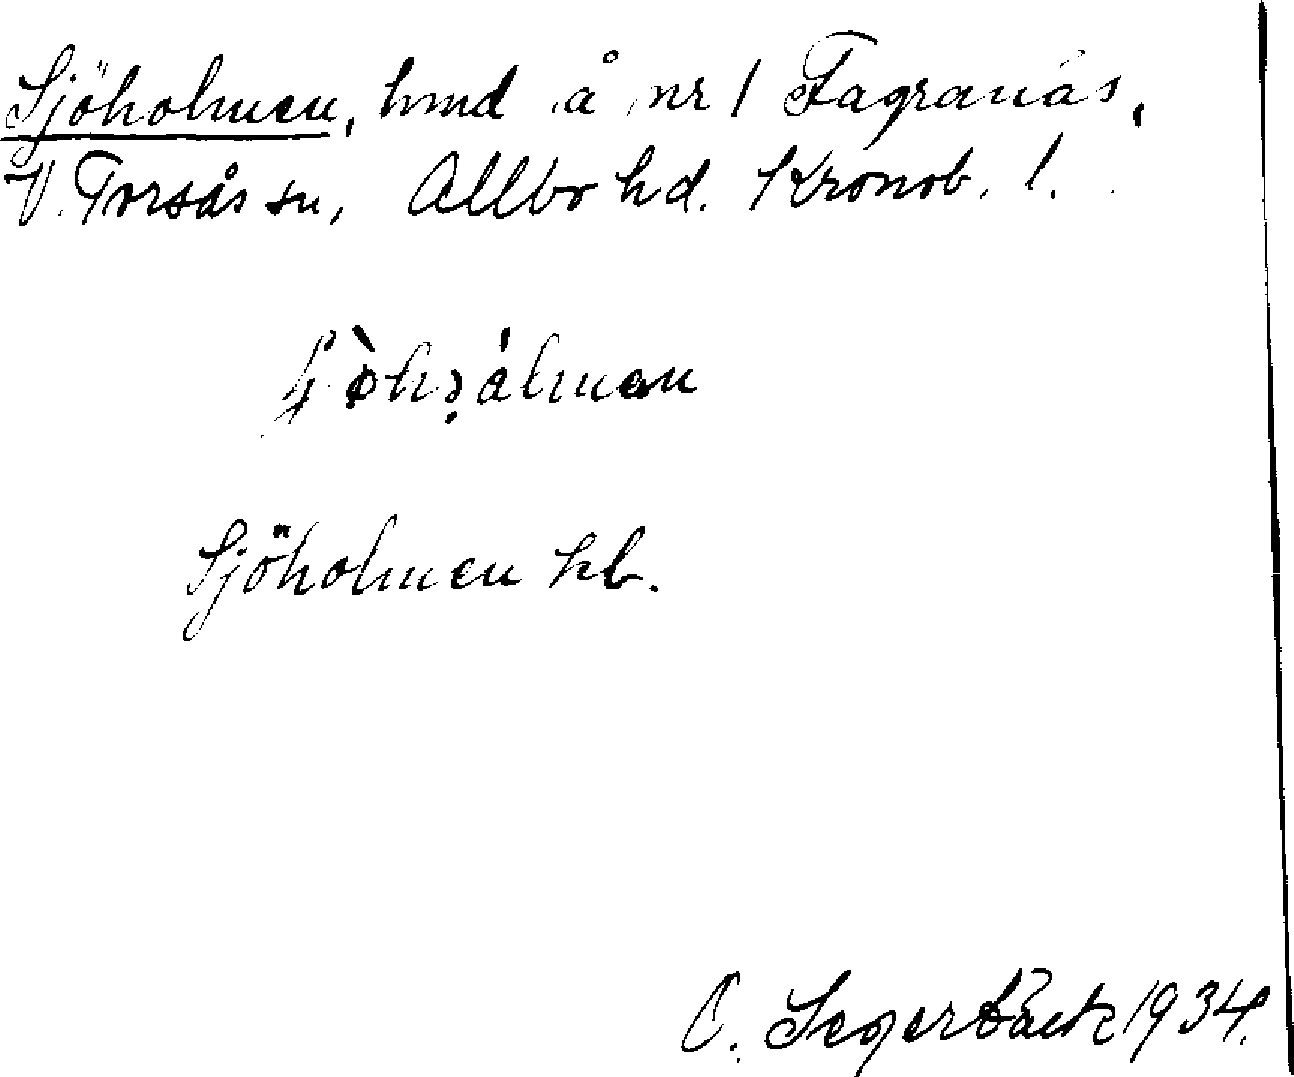 Sjöholmen, hmd å nr 1 Fagranäs,
V. Torsås sn, Allbo hd. Kronob. l.
Sjöholmen kb.
C. Segerbäck 1934.